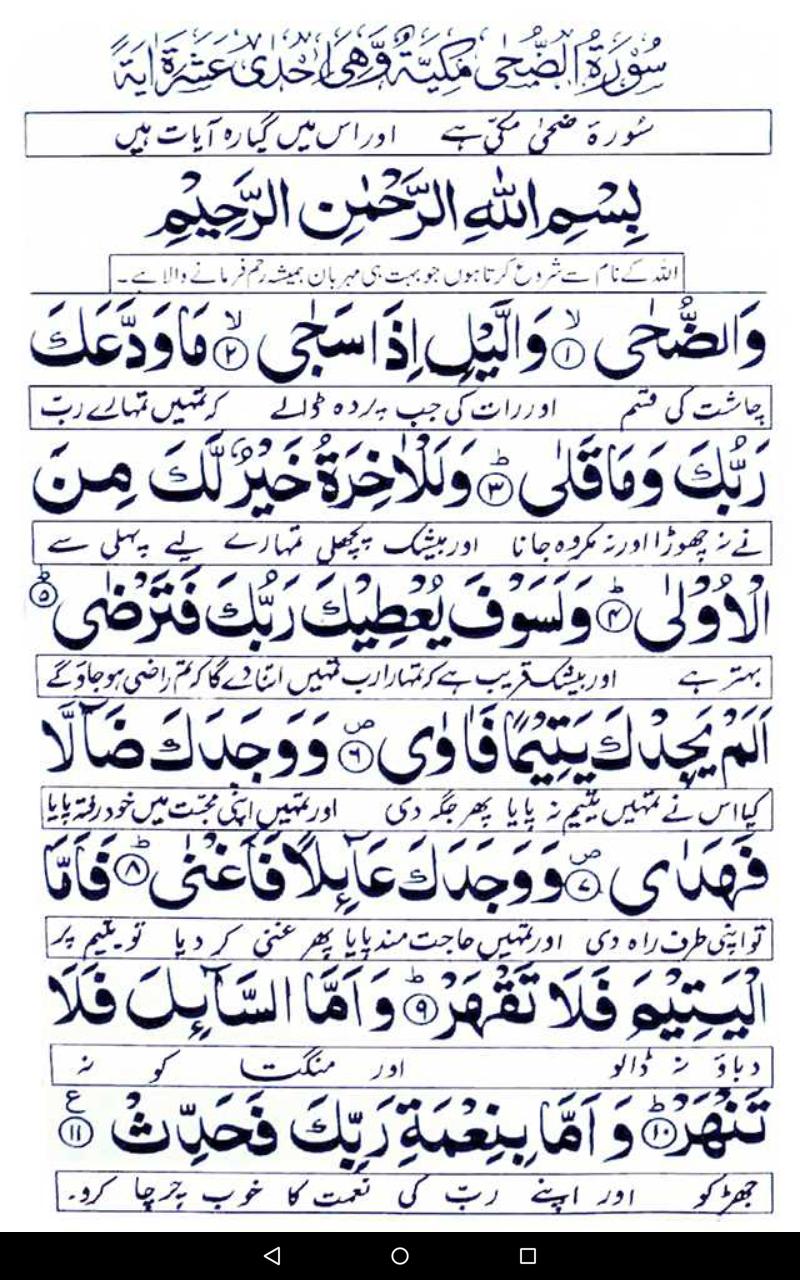 سُوْرَةُ الضُّحٰى مَكِّيَّةٌ وَّهِيَ اِحْدٰى عَشْرَةَ اٰيَةً
سُورۂ ضحیٰ مکّی ہے اور اس میں گیارہ آیات ہیں
بِسْمِ اللّٰهِ الرَّحْمٰنِ الرَّحِيْمِ
اللہ کے نام سے شروع کرتا ہوں جو بہت ہی مہربان ہمیشہ رحم فرمانے والا ہے۔
وَالضُّحٰى ۙ‏﴿۱﴾ وَالَّيْلِ اِذَا سَجٰى ۙ‏﴿۲﴾ مَا وَدَّعَكَ
چاشت کی قسم اور رات کی جب پردہ ڈالے کہ تمہیں تمہارے ربّ
رَبُّكَ وَمَا قَلٰى ؕ‏﴿۳﴾ وَلَلْاٰخِرَةُ خَيْرٌ لَّكَ مِنَ
نے نہ چھوڑا اور نہ مکروہ جانا اور بیشک پچھلی تمہارے لیے پہلی سے
الْاُوْلٰى ؕ‏﴿۴﴾ وَلَسَوْفَ يُعْطِيْكَ رَبُّكَ فَتَرْضٰى ؕ‏﴿۵﴾
بہتر ہے اور بیشک قریب ہے کہ تمہارا رب تمہیں اتنا دے گا کہ تم راضی ہو جاؤ گے
اَلَمْ يَجِدْكَ يَتِيْمًا فَاٰوٰى ۪‏﴿۶﴾ وَوَجَدَكَ ضَآلًّا
کیا اس نے تمہیں یتیم نہ پایا پھر جگہ دی اور تمہیں اپنی محبّت میں خود رفتہ پایا
فَهَدٰى ۪‏﴿۷﴾ وَوَجَدَكَ عَآئِلًا فَاَغْنٰى ؕ‏﴿۸﴾ فَاَمَّا
تو اپنی طرف راہ دی اور تمہیں حاجت مند پایا پھر غنی کر دیا تو یتیم پر
الْيَتِيْمَ فَلَا تَقْهَرْ ؕ‏﴿۹﴾ وَاَمَّا السَّآئِلَ فَلَا
دباؤ نہ ڈالو اور منگتا کو نہ
تَنْهَرْ ؕ‏﴿۱۰﴾ وَاَمَّا بِنِعْمَةِ رَبِّكَ فَحَدِّثْ ﴿۱۱﴾ ع
جھڑکو اور اپنے ربّ کی نعمت کا خوب چرچا کرو۔